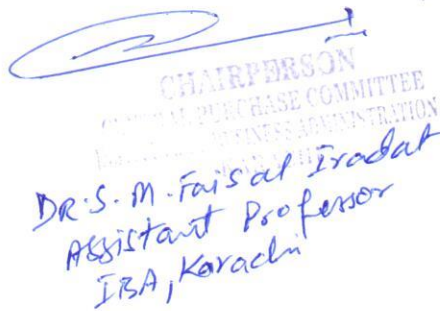 CHAIRPERSON
PURCHASE COMMITTEE
BUSINESS ADMINISTRATION
DR. S. M. Faisal Iradat
Assistant Professor
IBA, Karachi